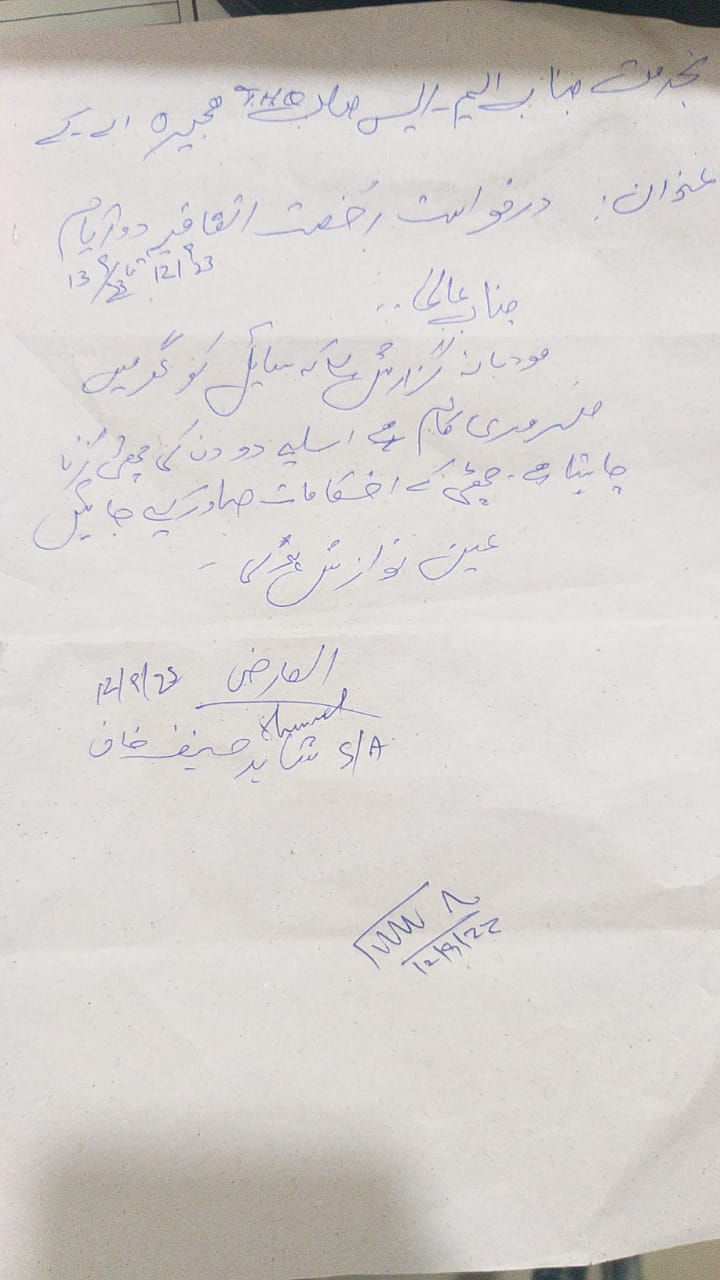 بخدمت جناب ایم-ایس صاحب T.H.Q ہجیرہ اے-کے
عنوان: درخواست رخصت اتفاقیہ دو ایام
جناب عالی!..
مودبانہ گزارش ہے کہ سایل کو گھر میں
ضروری کام ہے اسلیے دو دن کی چھٹی کرنا
چاہتا ہے - چھٹی کے احکامات صادر کیے جائیں
عین نوازش ہو گی -
العارض 12/9/23
S/A شاہد حنیف خان